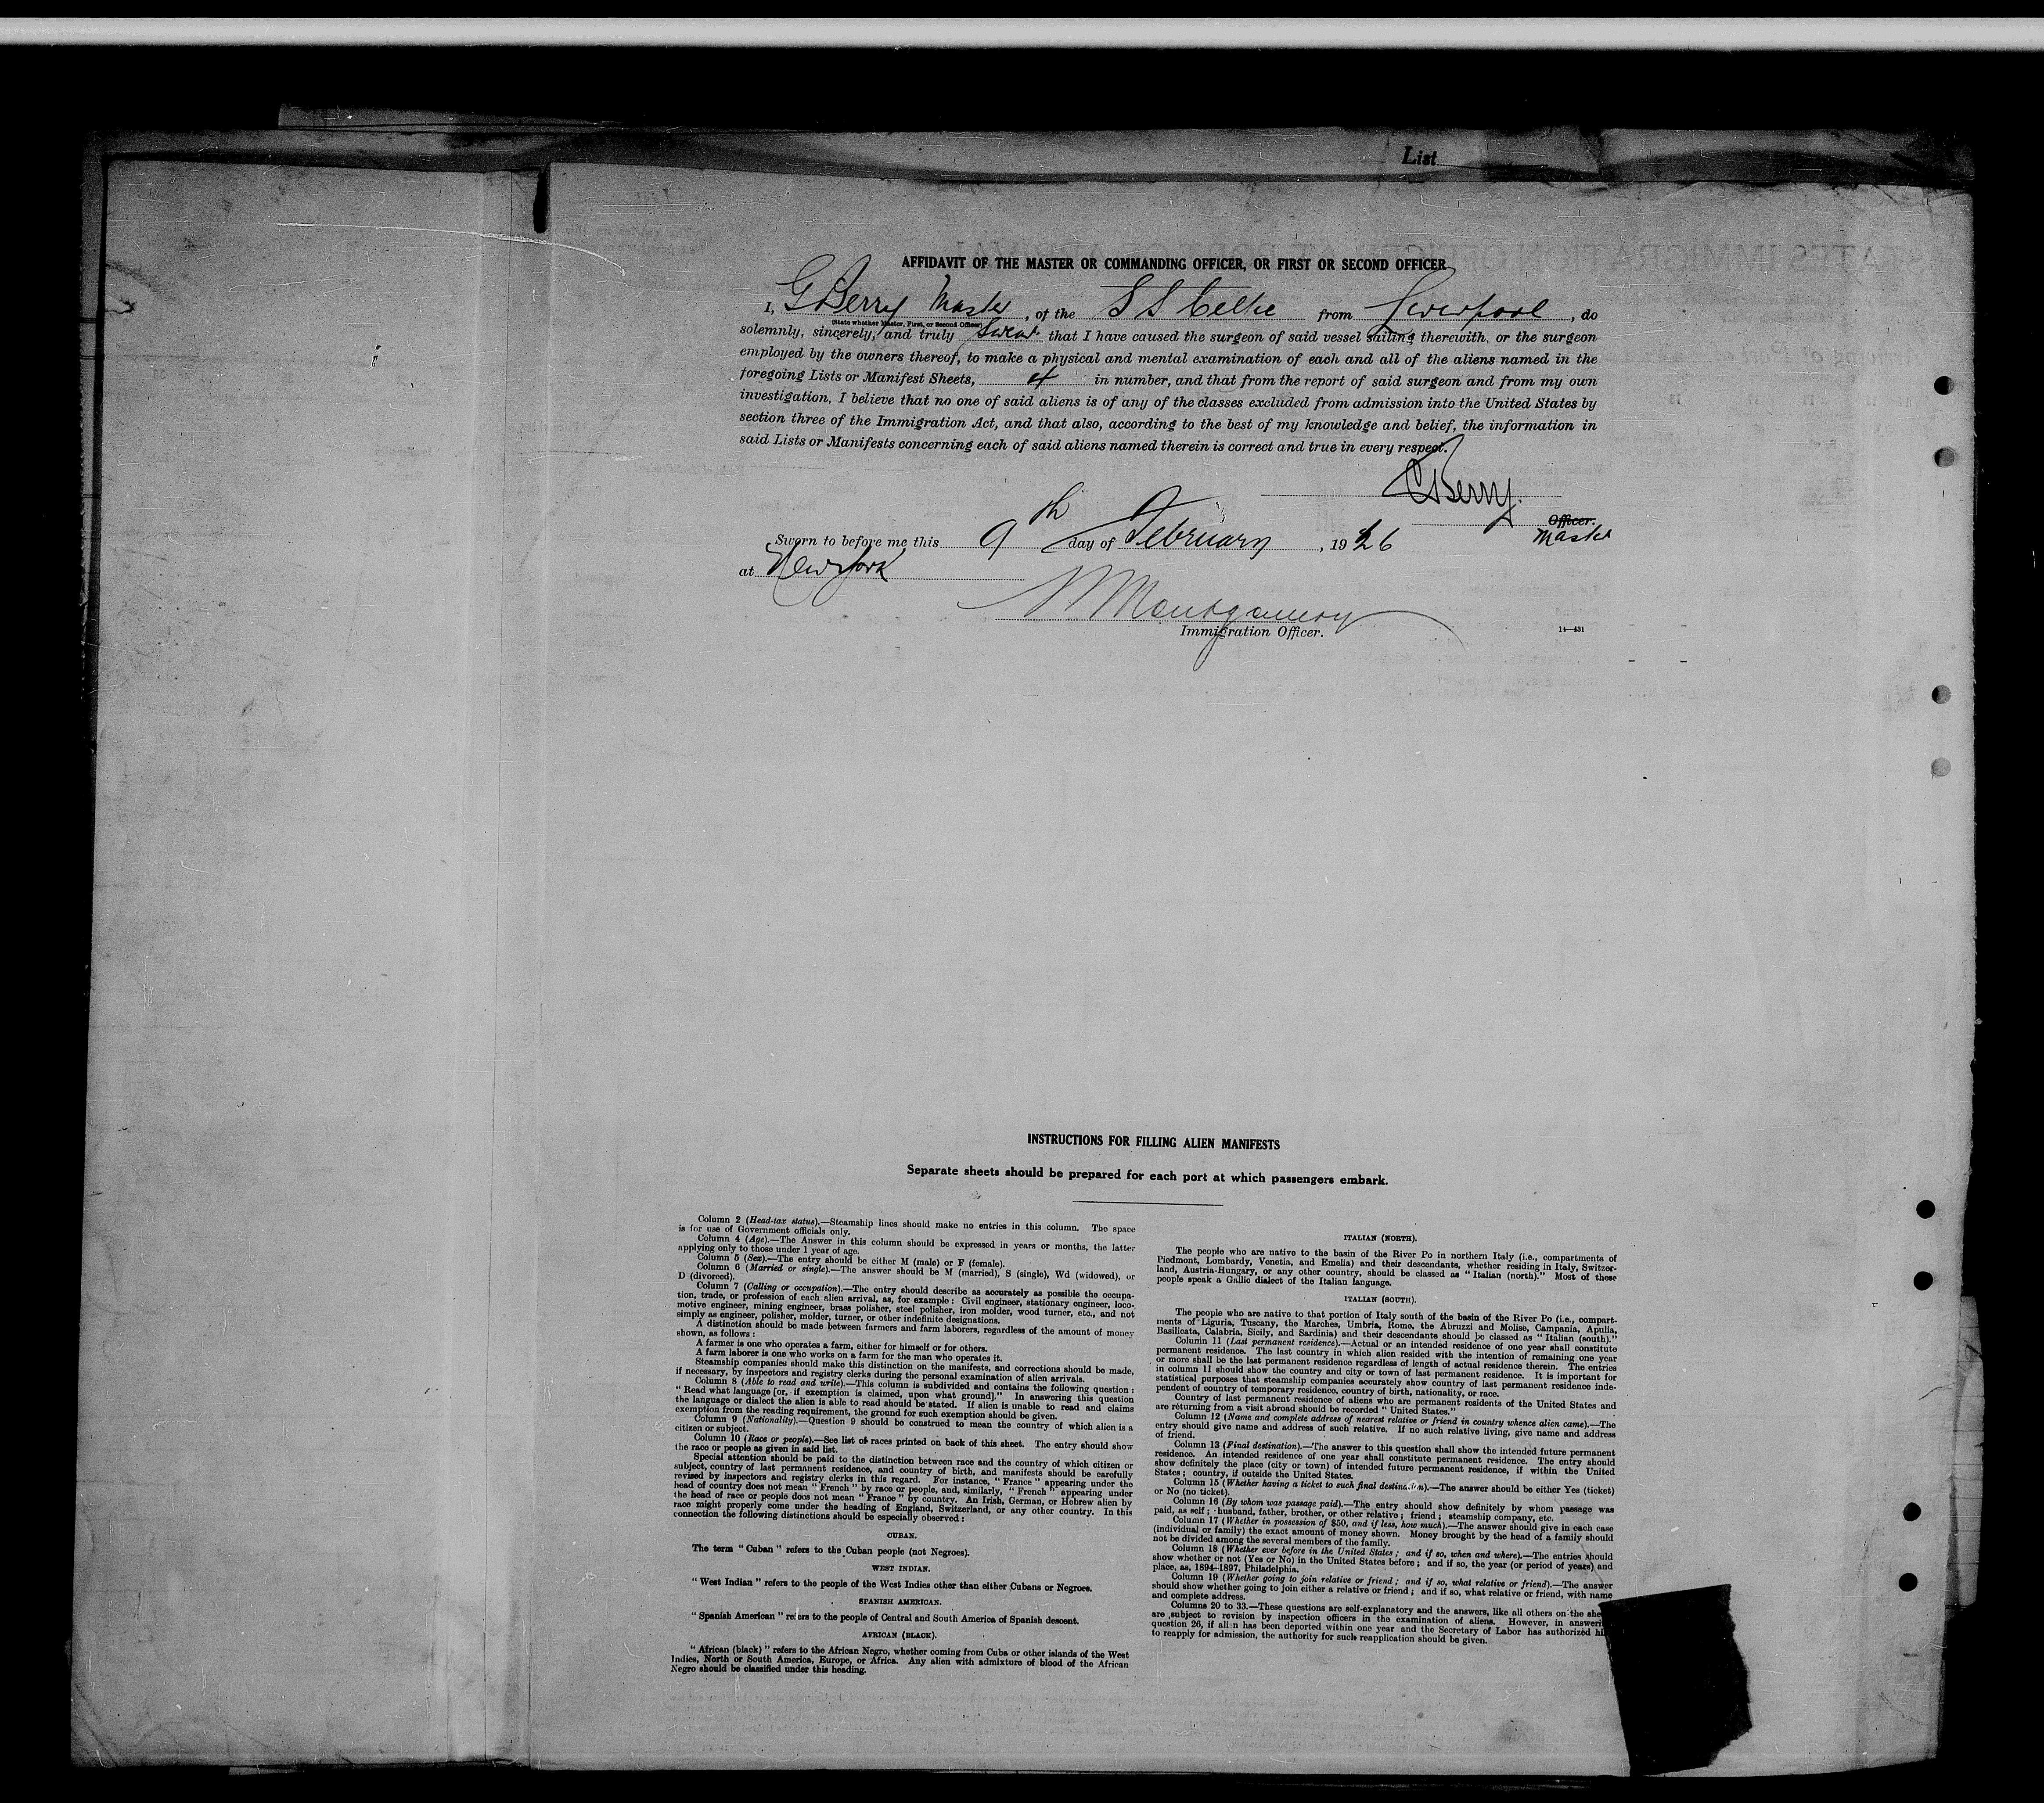 List
AFFIDAVIT OF THE MASTER OR COMMANDING OFFICER, OR FIRST OR SECOND OFFICER
I, G Berry Master, of the S S Celtic from Liverpool, do
(State whether Master, First, or Second Officer)
solemnly, sincerely, and truly swear that I have caused the surgeon of said vessel sailing therewith, or the surgeon
employed by the owners thereof, to make a physical and mental examination of each and all of the aliens named in the
foregoing Lists or Manifest Sheets, 4 in number, and that from the report of said surgeon and from my own
investigation, I believe that no one of said aliens is of any of the classes excluded from admission into the United States by
section three of the Immigration Act, and that also, according to the best of my knowledge and belief, the information in
said Lists or Manifests concerning each of said aliens named therein is correct and true in every respect.
G Berry.
Officer.
Master
Sworn to before me this 9th day of February, 1926
at New York
Montgomery
Immigration Officer.
14—431
INSTRUCTIONS FOR FILLING ALIEN MANIFESTS
Separate sheets should be prepared for each port at which passengers embark.
Column 2 (Head-tax status).—Steamship lines should make no entries in this column. The space
is for use of Government officials only.
Column 4 (Age).—The Answer in this column should be expressed in years or months, the latter
applying only to those under 1 year of age.
Column 5 (Sex).—The entry should be either M (male) or F (female).
Column 6 (Married or single).—The answer should be M (married), S (single), Wd (widowed), or
D (divorced).
Column 7 (Calling or occupation).—The entry should describe as accurately as possible the occupa-
tion, trade, or profession of each alien arrival, as, for example: Civil engineer, stationary engineer, loco-
motive engineer, mining engineer, brass polisher, steel polisher, iron molder, wood turner, etc., and not
simply as engineer, polisher, molder, turner, or other indefinite designations.
A distinction should be made between farmers and farm laborers, regardless of the amount of money
shown, as follows:
A farmer is one who operates a farm, either for himself or for others.
A farm laborer is one who works on a farm for the man who operates it.
Steamship companies should make this distinction on the manifests, and corrections should be made,
if necessary, by inspectors and registry clerks during the personal examination of alien arrivals.
Column 8 (Able to read and write).—This column is subdivided and contains the following question:
"Read what language [or, if exemption is claimed, upon what ground]." In answering this question
the language or dialect the alien is able to read should be stated. If alien is unable to read and claims
exemption from the reading requirement, the ground for such exemption should be given.
Column 9 (Nationality).—Question 9 should be construed to mean the country of which alien is a
citizen or subject.
Column 10 (Race or people).—See list of races printed on back of this sheet. The entry should show
the race or people as given in said list.
Special attention should be paid to the distinction between race and the country of which citizen or
subject, country of last permanent residence, and country of birth, and manifests should be carefully
revised by inspectors and registry clerks in this regard. For instance, "France" appearing under the
head of country does not mean "French" by race or people, and, similarly, "French" appearing under
the head of race or people does not mean "France" by country. An Irish, German, or Hebrew alien by
race might properly come under the heading of England, Switzerland, or any other country. In this
connection the following distinctions should be especially observed:
CUBAN.
The term "Cuban" refers to the Cuban people (not Negroes).
WEST INDIAN.
"West Indian" refers to the people of the West Indies other than either Cubans or Negroes.
SPANISH AMERICAN.
"Spanish American" refers to the people of Central and South America of Spanish descent.
AFRICAN (BLACK).
"African (black)" refers to the African Negro, whether coming from Cuba or other islands of the West
Indies, North or South America, Europe, or Africa. Any alien with admixture of blood of the African
Negro should be classified under this heading.
ITALIAN (NORTH).
The people who are native to the basin of the River Po in northern Italy (i.e., compartments of
Piedmont, Lombardy, Venetia, and Emelia) and their descendants, whether residing in Italy, Switzer-
land, Austria-Hungary, or any other country, should be classed as "Italian (north)." Most of these
people speak a Gallic dialect of the Italian language.
ITALIAN (SOUTH).
The people who are native to that portion of Italy south of the basin of the River Po (i.e., compart-
ments of Liguria, Tuscany, the Marches, Umbria, Rome, the Abruzzi and Molise, Campania, Apulia,
Basilicata, Calabria, Sicily, and Sardinia) and their descendants should be classed as "Italian (south)."
Column 11 (Last permanent residence).—Actual or an intended residence of one year shall constitute
permanent residence. The last country in which alien resided with the intention of remaining one year
or more shall be the last permanent residence regardless of length of actual residence therein. The entries
in column 11 should show the country and city or town of last permanent residence. It is important for
statistical purposes that steamship companies accurately show country of last permanent residence inde-
pendent of country of temporary residence, country of birth, nationality, or race.
Country of last permanent residence of aliens who are permanent residents of the United States and
are returning from a visit abroad should be recorded "United States."
Column 12 (Name and complete address of nearest relative or friend in country whence alien came).—The
entry should give name and address of such relative. If no such relative living, give name and address
of friend.
Column 13 (Final destination).—The answer to this question shall show the intended future permanent
residence. An intended residence of one year shall constitute permanent residence. The entry should
show definitely the place (city or town) of intended future permanent residence, if within the United
States; country, if outside the United States.
Column 15 (Whether having a ticket to such final destination).—The answer should be either Yes (ticket)
or No (no ticket).
Column 16 (By whom was passage paid).—The entry should show definitely by whom passage was
paid, as self; husband, father, brother, or other relative; friend; steamship company, etc.
Column 17 (Whether in possession of $50, and if less, how much).—The answer should give in each case
(individual or family) the exact amount of money shown. Money brought by the head of a family should
not be divided among the several members of the family.
Column 18 (Whether ever before in the United States; and if so, when and where).—The entries should
show whether or not (Yes or No) in the United States before; and if so, the year (or period of years) and
place, as, 1894-1897, Philadelphia.
Column 19 (Whether going to join relative or friend; and if so, what relative or friend).—The answer
should show whether going to join either a relative or friend; and if so, what relative or friend, with name
and complete address.
Columns 20 to 33.—These questions are self-explanatory and the answers, like all others on the shee
are subject to revision by inspection officers in the examination of aliens. However, in answeri
question 26, if alien has been deported within one year and the Secretary of Labor has authorized hi
to reapply for admission, the authority for such reapplication should be given.